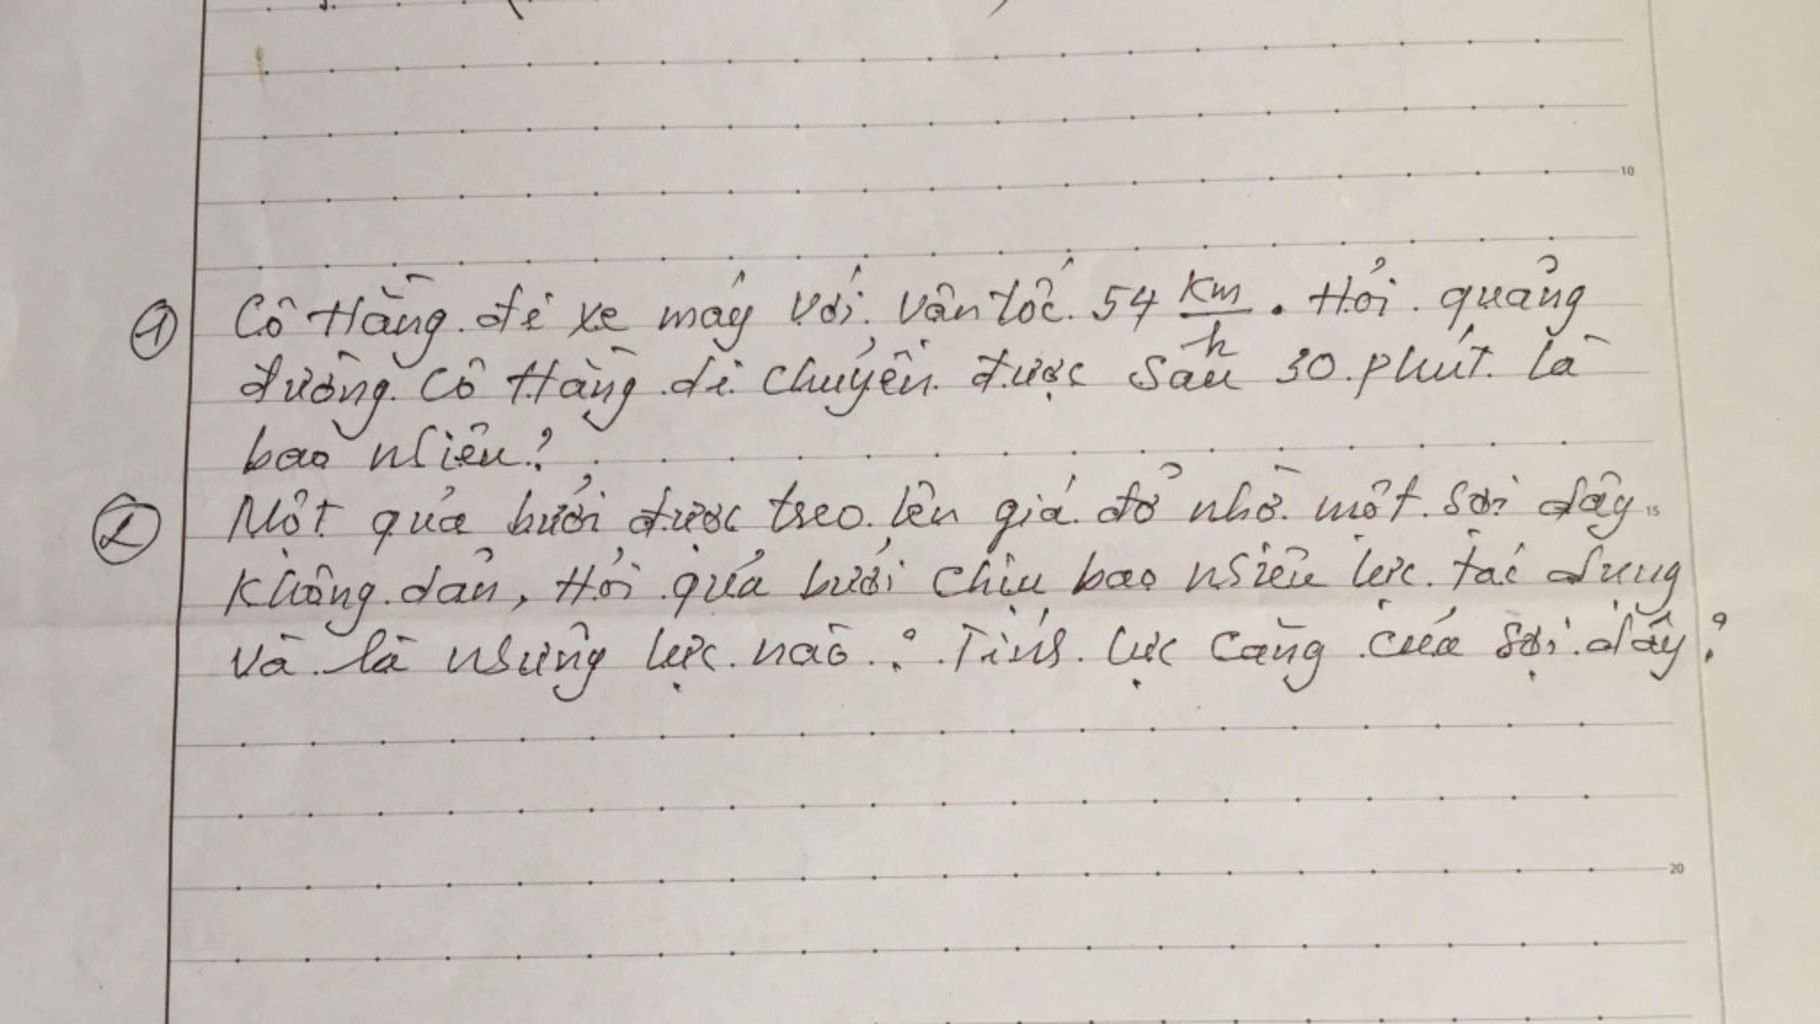 ① Cô Hằng đi xe máy với vân tốc 54 km/h. Hỏi quảng
đường Cô Hằng di chuyển được sau 30 phút là
bao nhiêu?
② Một quả bưởi được treo lên giá đỡ nhờ một sợi dây
không dản, Hỏi quả bưởi chịu bao nhiêu lực tác dụng
và là những lực nào? Tính lực căng của sợi dây?